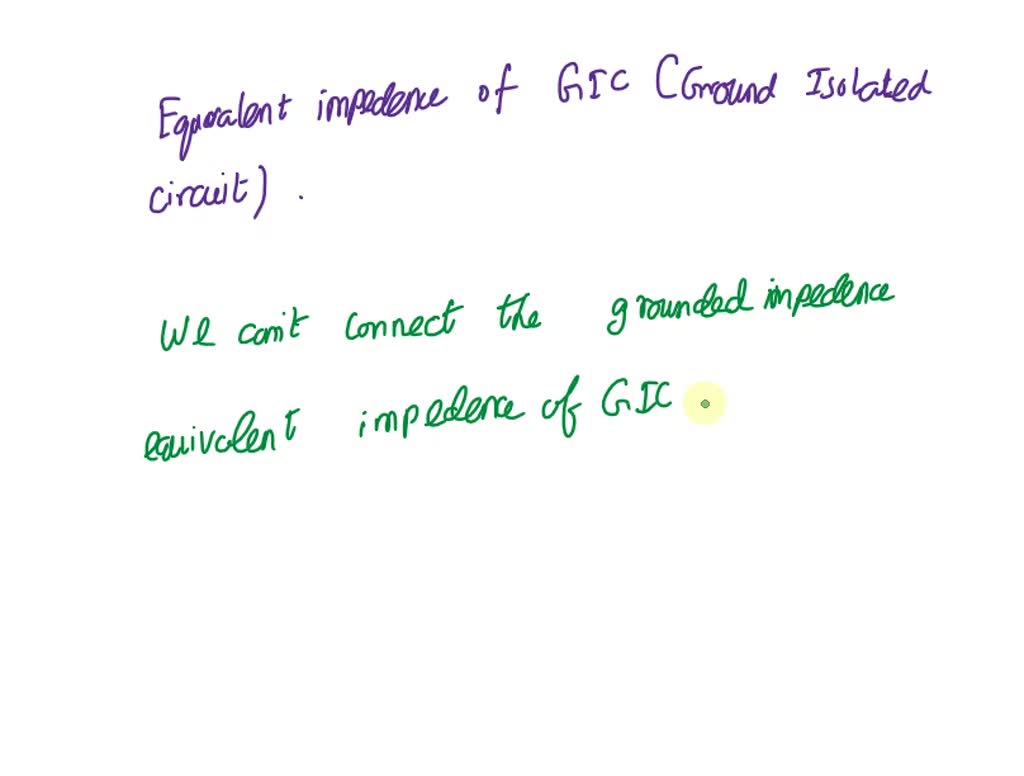 Equivalent impedence of GIC (Ground Isolated
circuit).
We can't connect the grounded impedence
equivalent impedence of GIC